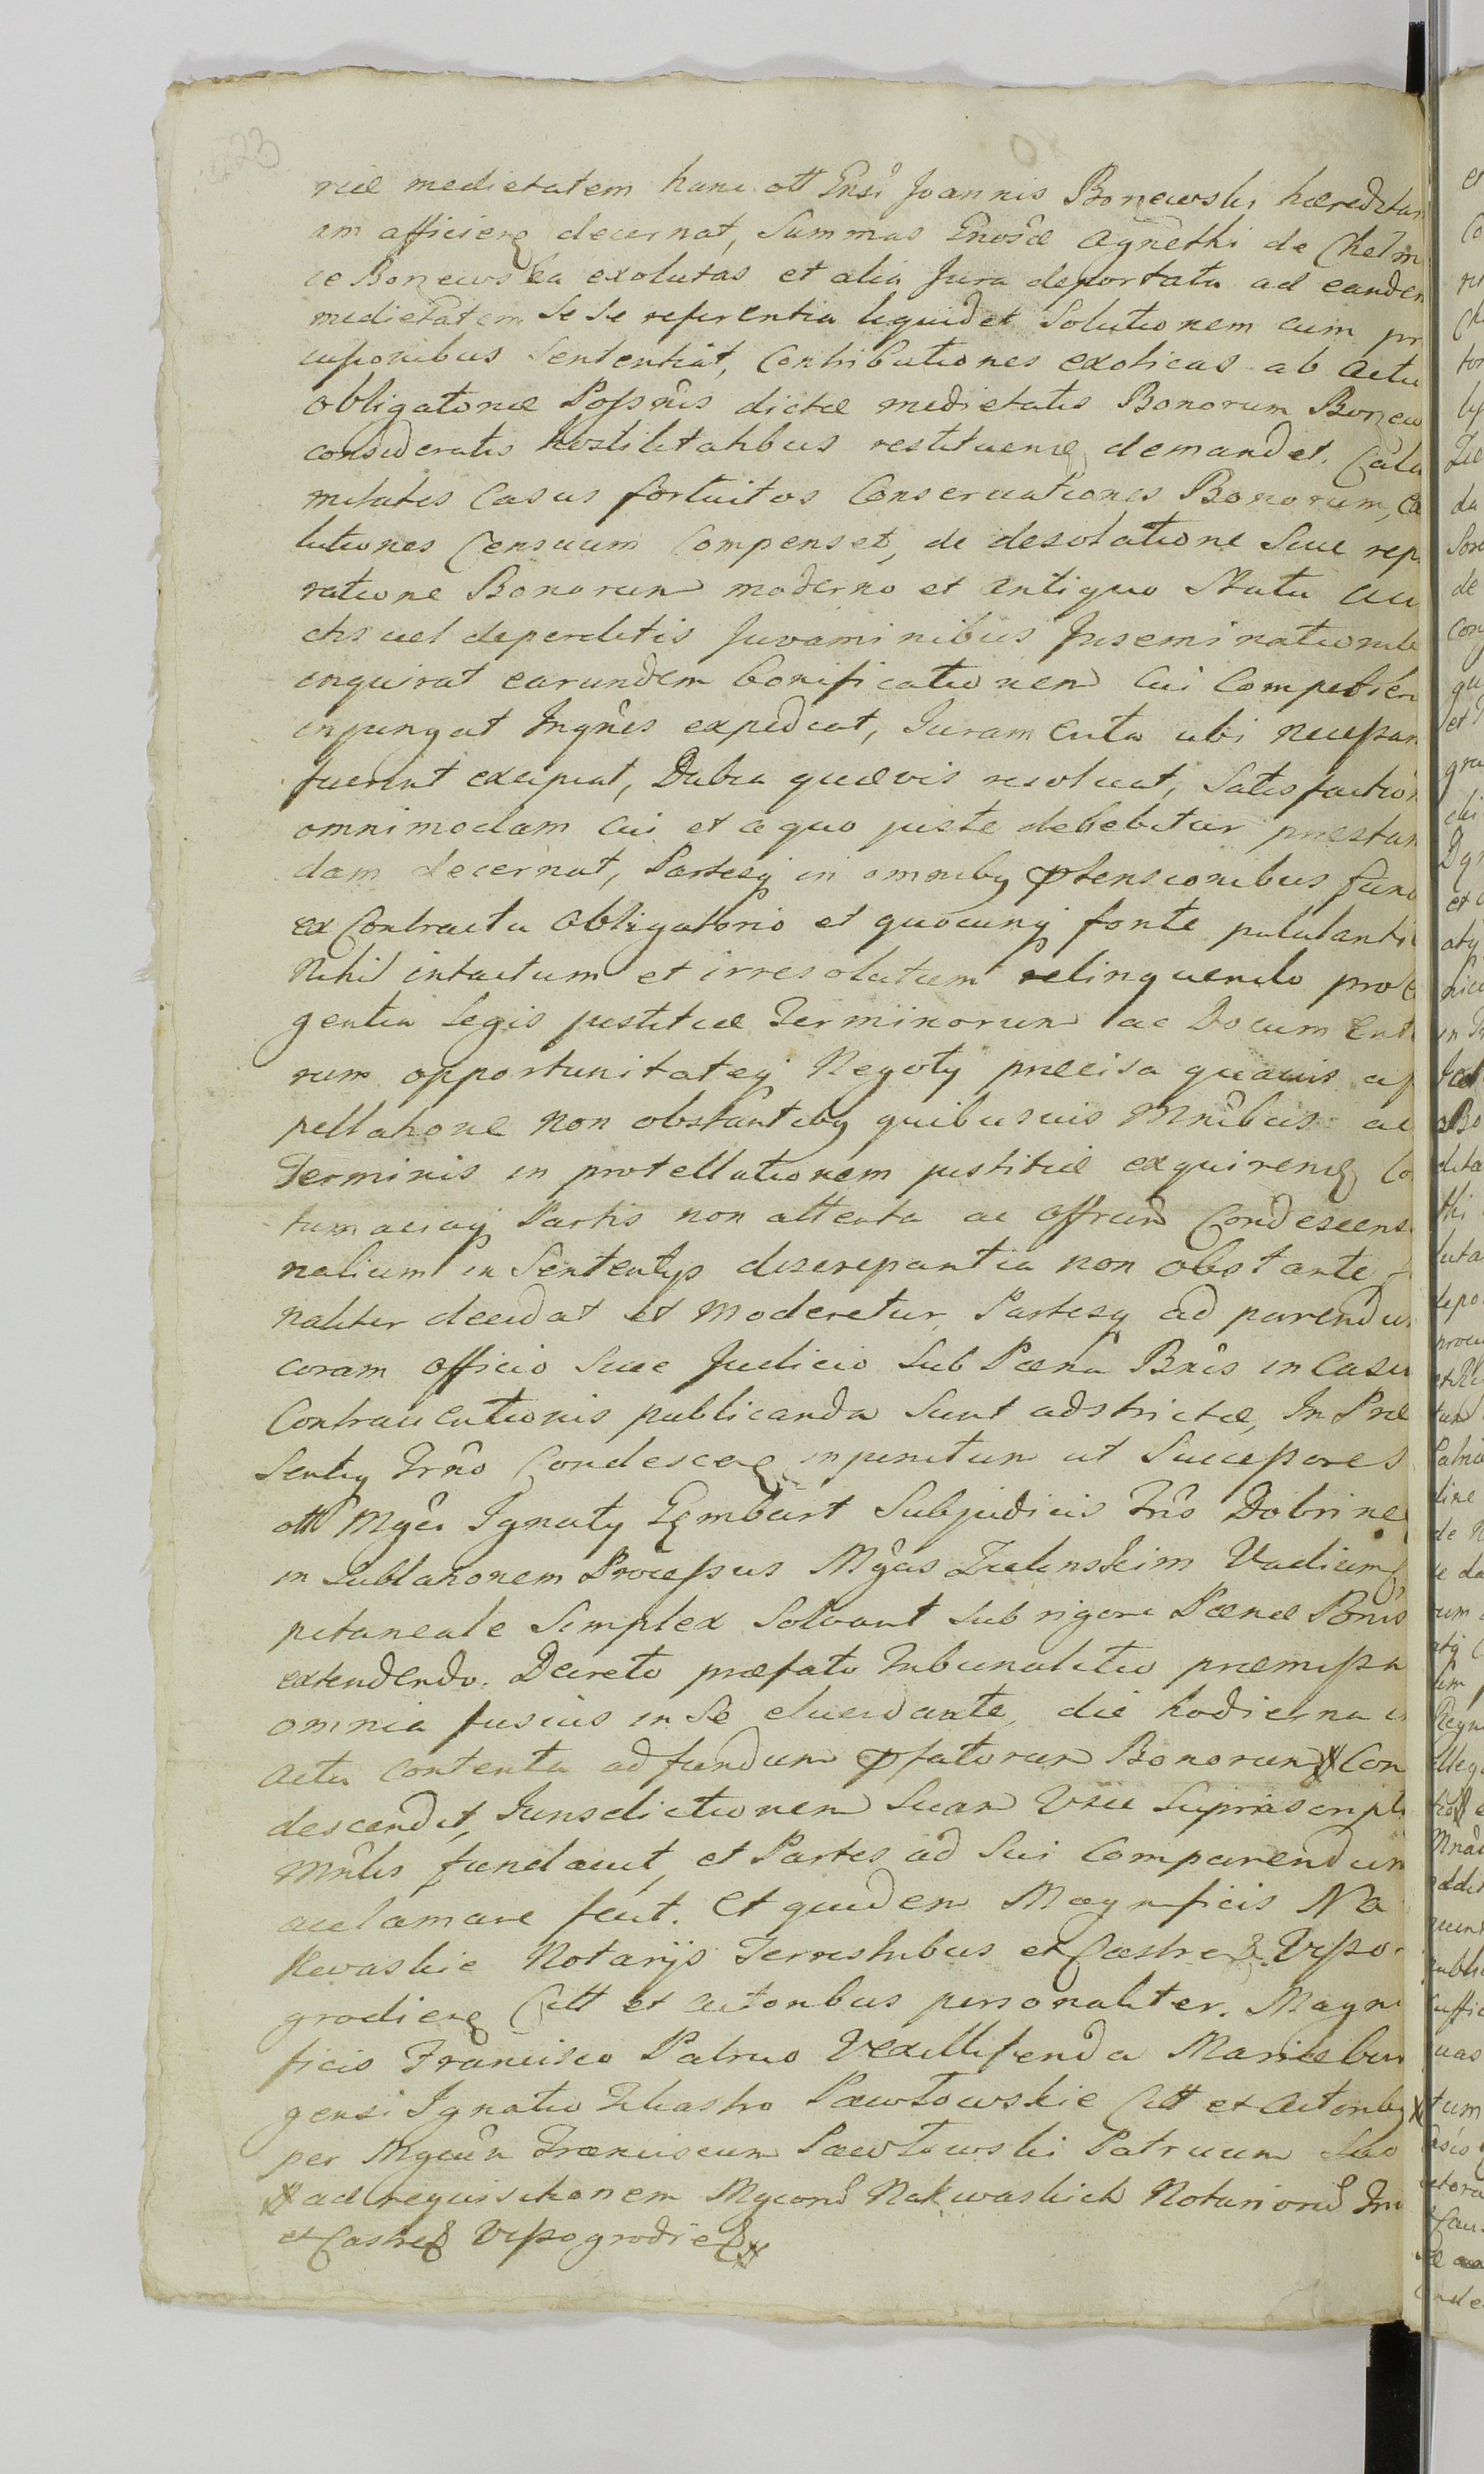 23
riæ medietatem hanc ott Gnsi Joannis Bonewski hæreditar
am afficiere decernat, Summas Gnosæ Agnethi de Chelm
ce Bonewska exolutas et alia Jura deportata ad eandem
medietatem Se Se referentia liquidet Solutionem cum pr
cussionibus Sententiat, Contributiones exoticas ab actu
Obligatoriæ Possnis dictæ medietatis Bonorum Bonew
consideratis hostilitatibus restituere demandet. Cala
mitates Casus fortuitos Conservationes Bonorum, Ex
lutiones Censuum Compenset, de desolatione Sive rep
ratione Bonorum moderno et antiquo Statu au
ctis vel deperditis Juvaminibus Inseminationib
inquirat earundem bonificationem Cui Competier
injungat Ingnes expediat, Juramenta ubi necessar
fuerint excipiat, Dubia quævis resolvat, Satisfaction
omnimodam Cui et a quo juste debebitur præstan
dam decernat, Partesq in omniby ptensionibus fund
ex Contractu Obligatorio et quocunq fonte pululanti
Nihil intactum et irresolutum relinquendo pro e
gentia Legis justitiæ Terminorum ac Documento
rum opportunitateq Negoty præcisa quavis ap
pellatione non obstantiby quibusvis Mnibus ac
Terminis in protellationem justitiæ exquirend Co
tumaciaq Partis non attenta ac offrum Condescens
nalium in Sententys discrepantia non obstante
naliter decidat et Moderetur, Partesq ad parendum
coram officio Suæ Judicio Sub Pæna Bnis in Casu
Contraventionis publicanda Sunt adstrictæ, In Præ
Sentiq Trno Condescen inpenitum ut Successores
ott Mgci Ignaty Zembart Subjudicis Tris Dobrine
in Sublationem Processus Mgcas Zielinskim Vadium
petaneale Simplex Solvant Sub rigore Pænæ Bnis
extendendo. Decreto præfato Tribunalitio præmissa
omnia fusius in Se elucidante, die hodierna in
Actu contenta ad fundum pfatorum Bonorum # Con
descendit, Jurisdictionem Suam Vsæ Suprascripti
Mnlis fundavit, et Partes ad Sui Comparendum
acclamare fecit. Et quidem Magnificis Na
kwaskie Notarijs Terrestribus et Castren Visso
grodien Citt et Actoribus personaliter. Magni
ficis Francisco Patruo Vexillifenda Mariæbur
gensi Ignatio Filiastro Pawłowskie Citt et Actoriby #
per Mgcum Franciscum Pawłowski Patruum Suo
# ad requisitionem Mgcorum Nakwaskich Notariorum Trr
et Castren Vissogrodien #